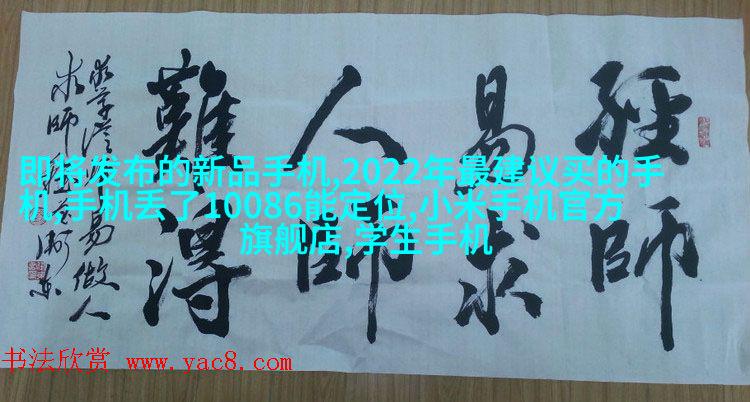 經師
易求
人師
難得
易做人
求師
即将发布的新品手机,2022年最建议买的手
机,手机丢了10086能定位,小米手机官方
旗舰店,学生手机
书法欣赏 www.yac8.com